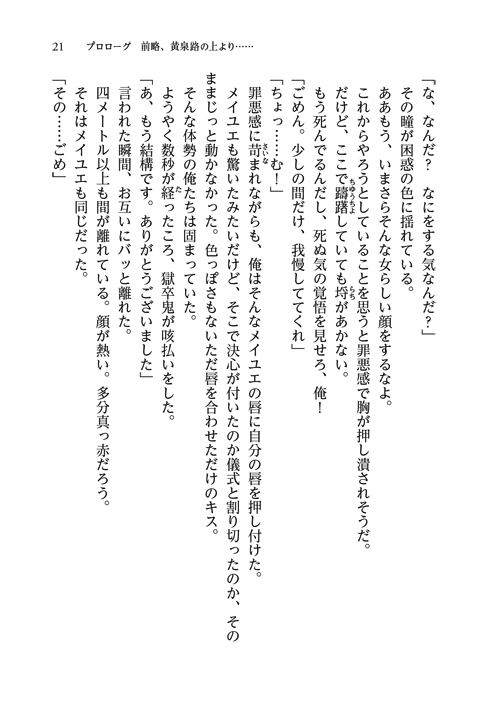 21　プロローグ　前略、黄泉路の上より……
『な、なんだ？　なにをする気なんだ？』
その瞳が困惑の色に揺れている。
ああもう、いまさらそんな女らしい顔をするなよ。
これからやろうとしていることを思うと罪悪感で胸が押し潰されそうだ。
だけど、ここで躊躇していても埒があかない。
もう死んでるんだし、死ぬ気の覚悟を見せろ、俺！
「ごめん。少しの間だけ、我慢しててくれ」
「ちょっ……む！」
罪悪感に苛まれながらも、俺はそんなメイユエの唇に自分の唇を押し付けた。
メイユエも驚いたみたいだけど、そこで決心が付いたのか儀式と割り切ったのか、その
ままじっと動かなかった。色っぽさもないただ唇を合わせただけのキス。
そんな体勢の俺たちは固まっていた。
ようやく数秒が経ったころ、獄卒鬼が咳払いをした。
「あ、もう結構です。ありがとうございました」
言われた瞬間、お互いにバッと離れた。
四メートル以上も間が離れている。顔が熱い。多分真っ赤だろう。
それはメイユエも同じだった。
「その……ごめ」